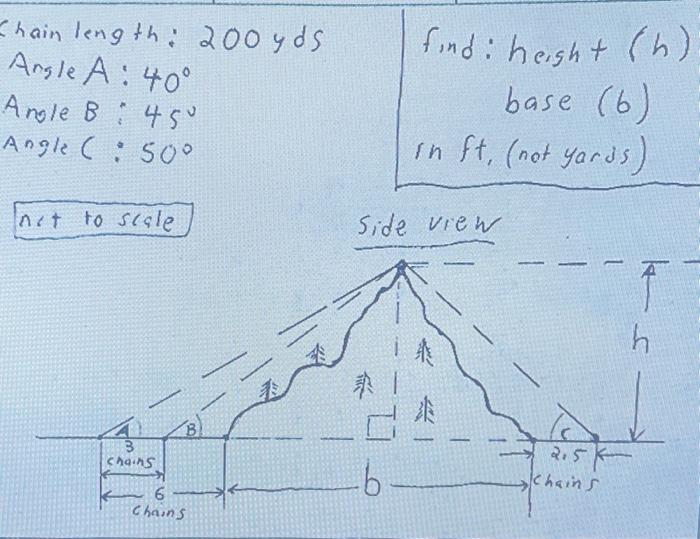 Chain length: 200 yds
Angle A: 40°
Angle B: 45°
Angle C: 50°
find: height (h)
base (b)
in ft, (not yards)
not to scale
Side view
h
A
B
C
3
chains
2.5
chains
6
chains
b